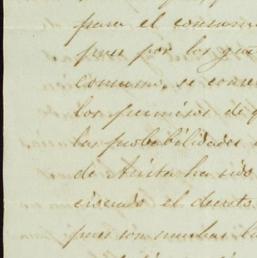 para el consum
pues por los que
consumi, se conce
los permisos de q
las probabilidades
de Arista ha sido
ciendo el decreto
pues son muchas la